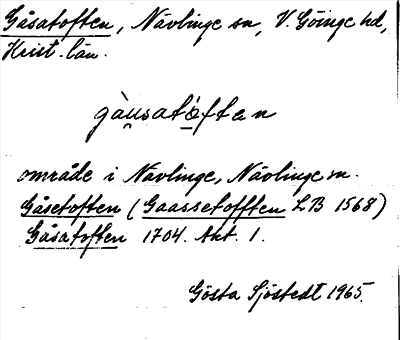 Gåsatoften, Nävlinge sn, V. Göinge hd,
Krist. län.
gàu̯sató̠ften
område i Nävlinge, Nävlinge sn.
Gåsetoften (Gaassetofften LB 1568)
Gåsatoften 1704. Akt. 1.
Gösta Sjöstedt 1965.